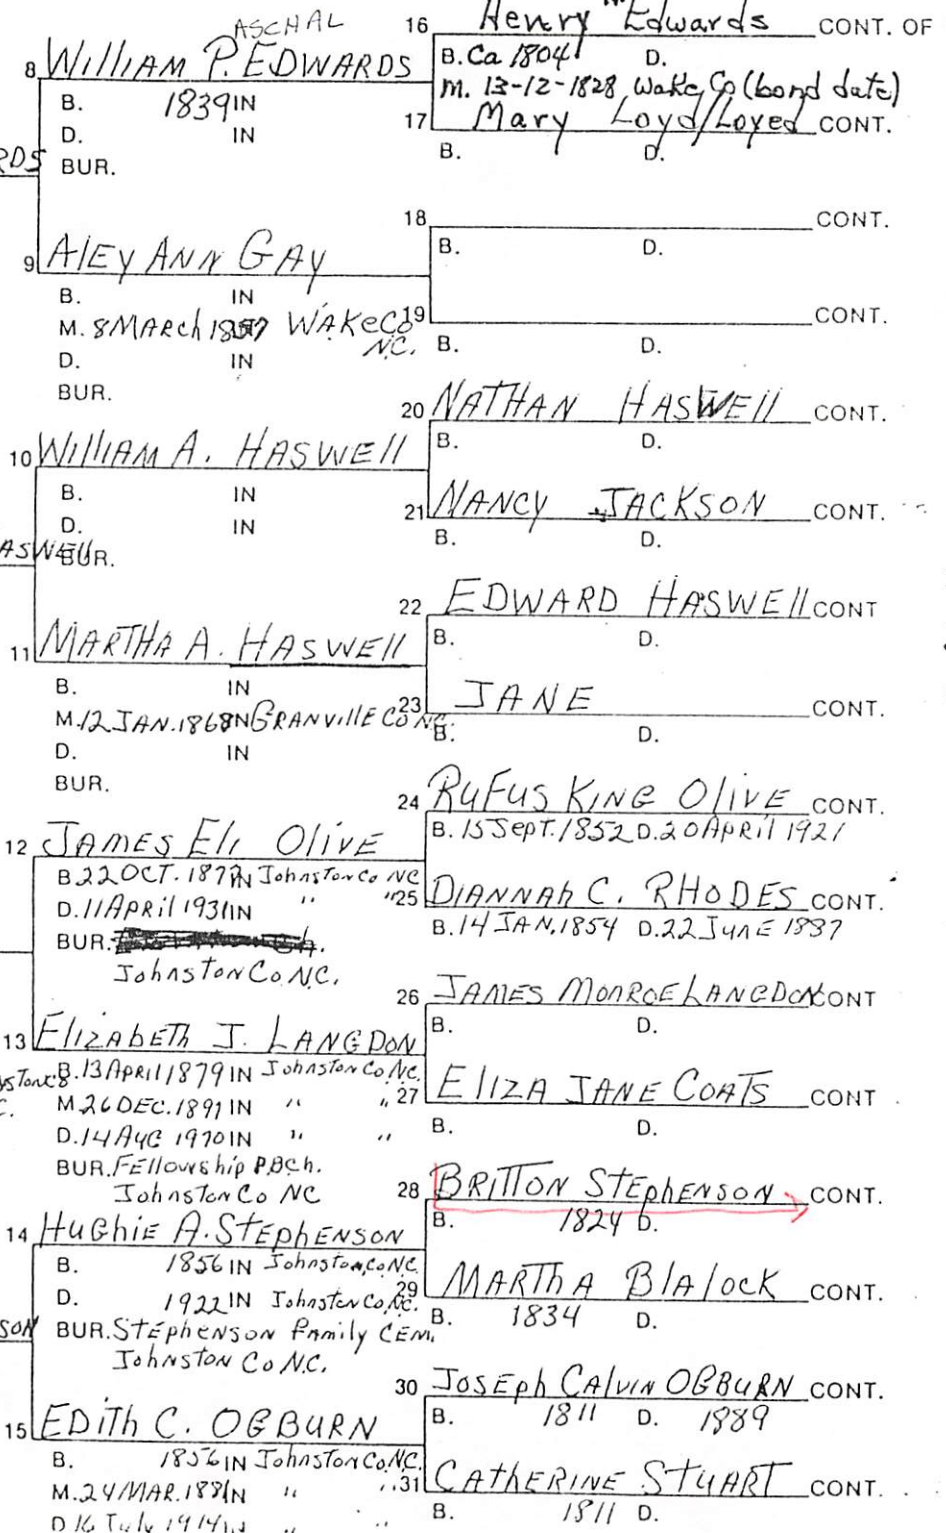 ASCHAL
8 WILLIAM P. EDWARDS
B. 1839 IN
D. IN
RDS BUR.
9 AlEY ANN GAY
B. IN
M. 8 MARCH WAKE CO
N.C.
D. IN
BUR.
10 WIllIAM A. HASWEll
B. IN
D. IN
ASWEll BUR.
11 MARTHA A. HASWEll
B. IN
M. 12 JAN. 1868 IN GRANVIllE CO NC.
D. IN
BUR.
12 JAMES ElI OlIVE
B. 22 OCT. IN Johnston Co NC
D. 11 APRIl 1931 IN " "
BUR.
Johnston Co. N.C.
13 ElIzAbETh J. LANGDON
B. 13 APRIl 1879 IN Johnston Co. NC.
M. 26 DEC. 1891 IN " "
D. 14 AUG 1970 IN " "
BUR. FEllowship P.B.Ch.
Johnston Co NC
14 HUGhIE A. STEphENSON
B. 1856 IN Johnston, Co. NC.
D. 1922 IN Johnston Co, NC.
SON BUR. STEphENSON Family CEM.
Johnston Co N.C.
15 EDITh C. OGBURN
B. 1856 IN Johnston Co. NC.
M. 24 MAR. 1881 IN " "
D. 16 July 1914 IN " "
16 Henry Edwards CONT. OF
B. Ca 1804 D.
M. 13-12-1828 Wake Co (bond date)
17 Mary Loyd/Loyed CONT.
B. D.
18 CONT.
B. D.
19 CONT.
B. D.
20 NATHAN HASWEll CONT.
B. D.
21 NANCY JACKSON CONT.
B. D.
22 EDWARD HASWEll CONT
B. D.
23 JANE CONT.
B. D.
24 RUFUS KING OlIVE CONT.
B. 15 Sept. 1852 D. 20 APRIl 1921
25 DIANNAh C. RHODES CONT.
B. 14 JAN. 1854 D. 22 JUNE
26 JAMES MONROE LANGDON CONT
B. D.
27 ElIZA JANE COATS CONT
B. D.
28 BRITTON STEphENSON CONT.
B. 1824 D.
29 MARTHA BlAlOCK CONT.
B. 1834 D.
30 JOSEph CAlVIN OGBURN CONT.
B. 1811 D. 1889
31 CATHERINE STUART CONT.
B. 1811 D.